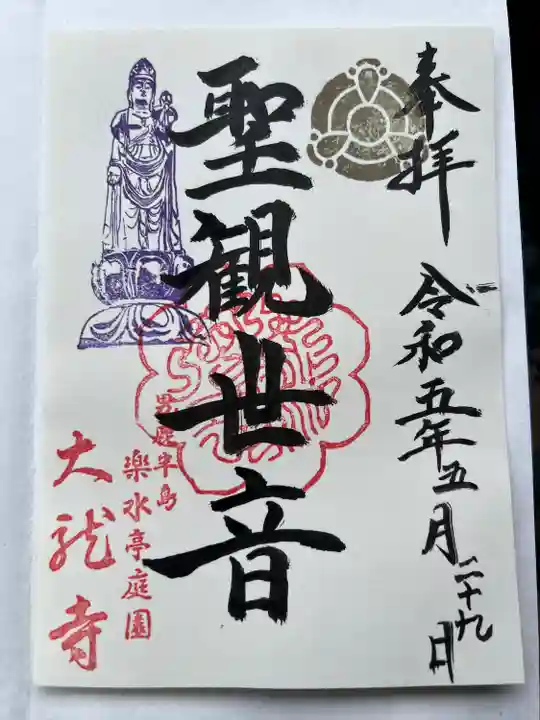 奉拝
令和五年五月二十九日
聖観世音
男鹿半島
楽水亭庭園
大龍寺